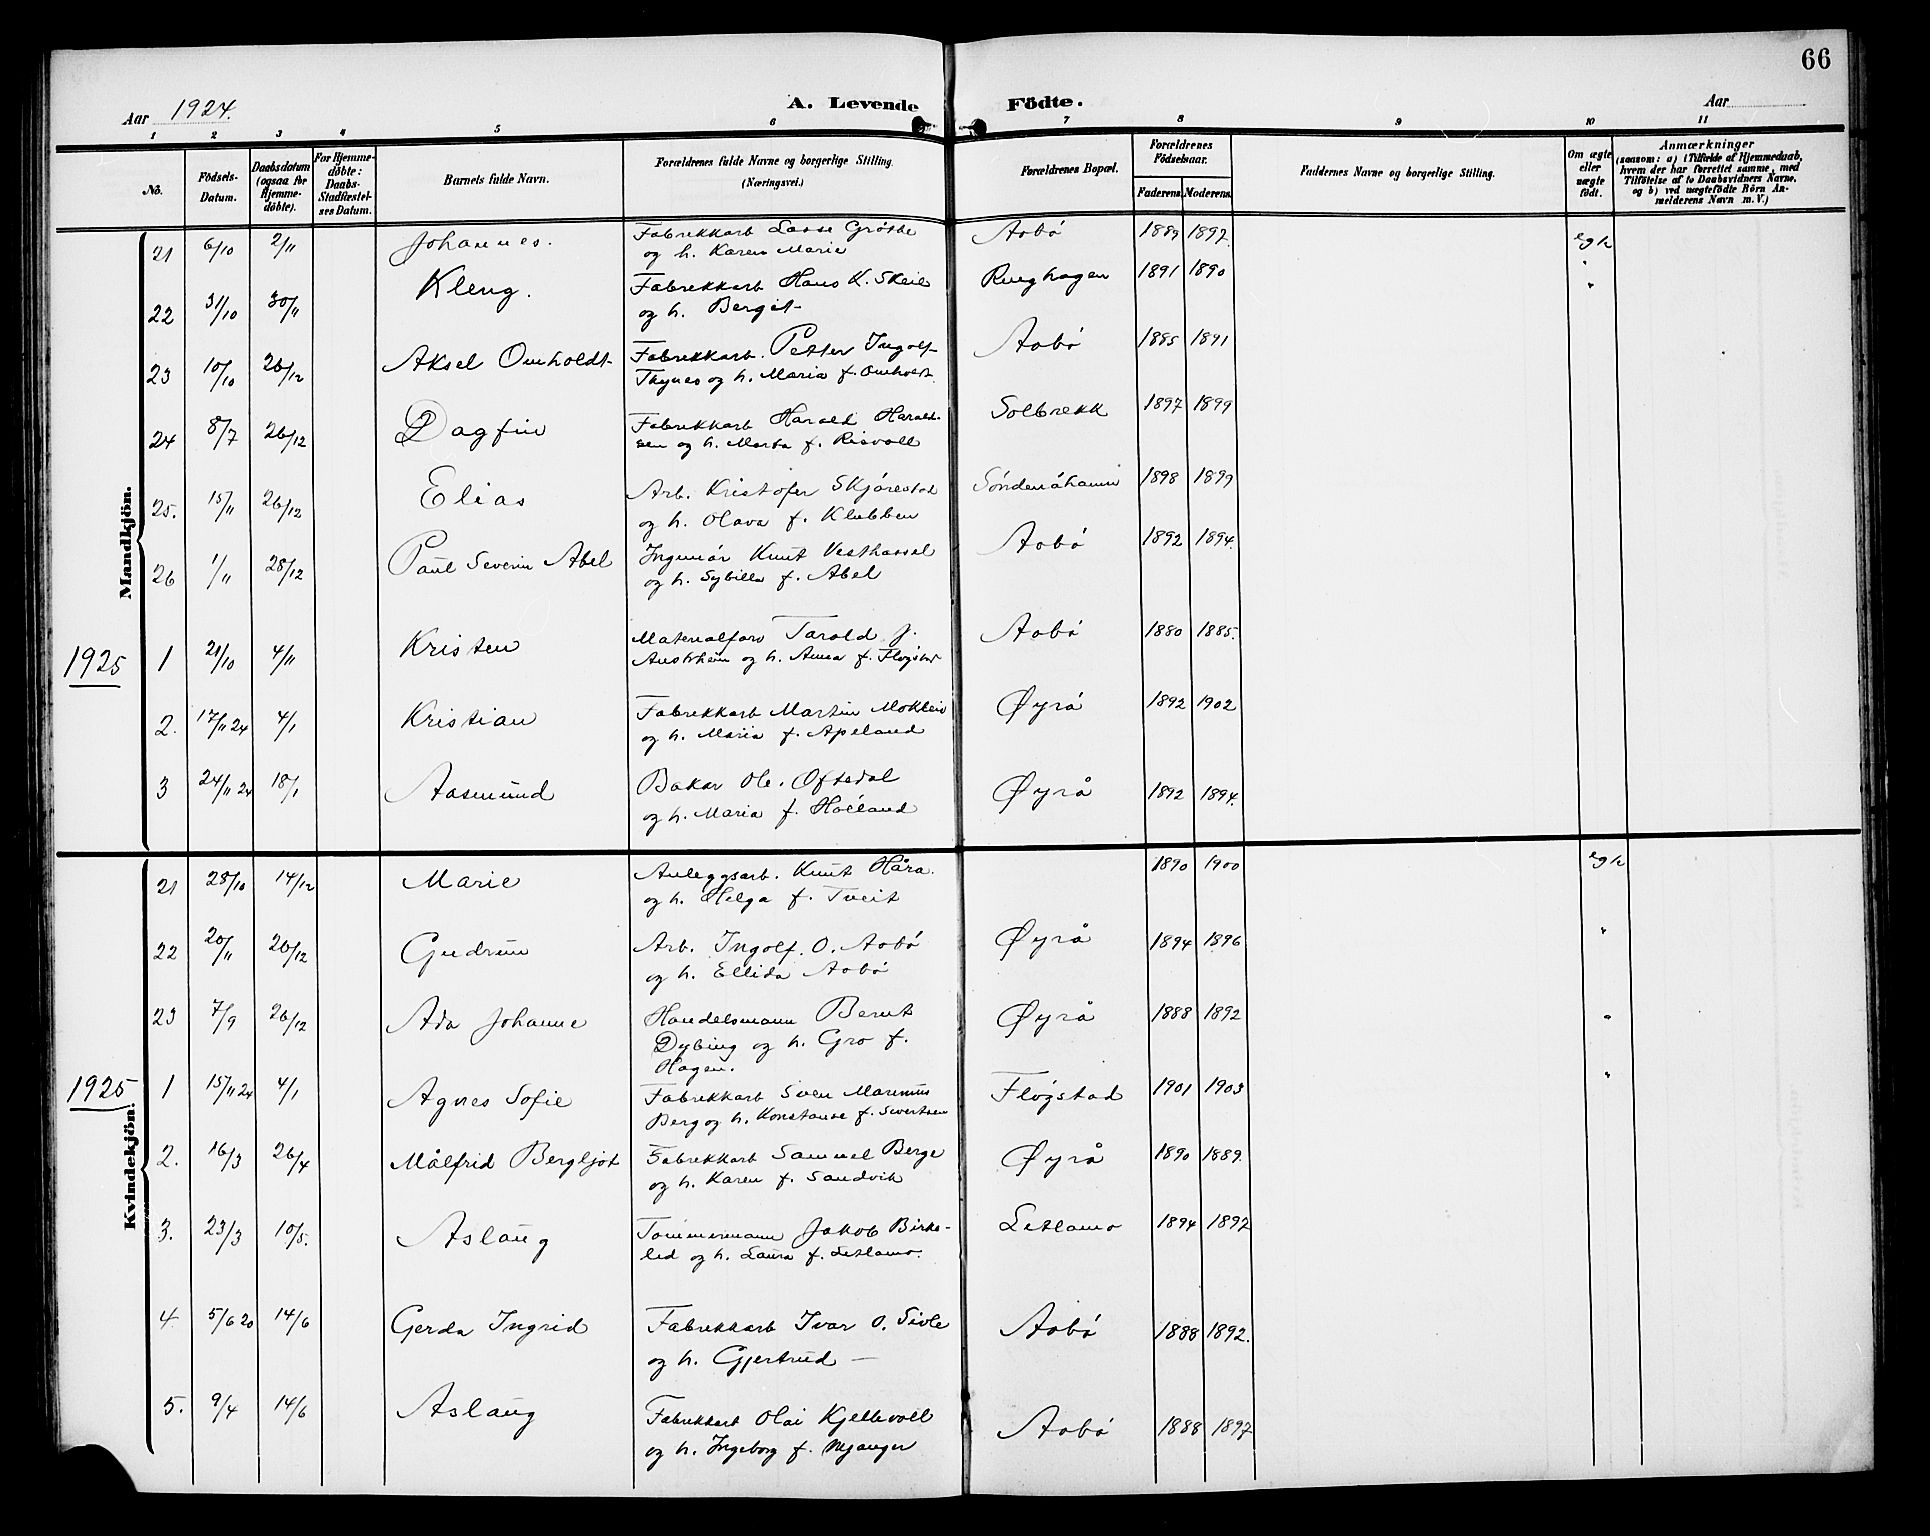 66
Aar 1924. A. Levende Födte. Aar
1 2 3 4 5 6 7 8 9 10 11
No. Födsels-Datum. Daabsdatum (ogsaa for Hjemme-döbte). For Hjemme-döbte: Daabs-Stadfæstel-ses Datum. Barnets fulde Navn. Forældrenes fulde Navne og borgerlige Stilling. (Næringsvei.) Forældrenes Bopæl. Forældrenes Födselsaar. Faderens. Moderens. Faddernes Navne og borgerlige Stilling. Om ægte eller uægte födt. Anmærkninger (saasom: a) i Tilfælde af Hjemmedaab, hvem der har forrettet samme, med Tilföielse af to Daabsvidners Navne, og b) ved uægtefödte Börn An-melderens Navn m. V.)
Mandkjön.
21 6/10 2/11 Johannes. Fabrekkarb Lasse Grøsbe Aobø 1889 1897. egh
og h. Karen Marie
22 31/10 30/11 Kleng. Fabrekkarb Hans K. Skeie Ringhagen 1891 1890 "
og h. Bergit
23 10/10 26/12 Aksel Omholdt Fabrekkarb. Petter Ingolf Aobø 1885 1891
Thynes og h. Maria f. Omholdt.
24 8/7 26/12 Dagfin Fabrekkarb Harald Harald- Solbrekk 1897 1899
sen og h. Marta f. Risvoll
25. 15/11 26/12 Elias Arb. Kristofer Skjørestad Søndenåhavn 1898 1899
og h. Olava f. Klubben
26 1/11 28/12 Paul Severin Abel Ingeniør Knut Vesthassel Aobø 1892 1894.
og h. Sybilla f. Abel
1925 1 21/10 4/11 Kristen Materialforv Tarald J. Aobø 1880 1885.
Austrheim og h. Anna f. Fløgstad
2. 17/11 24 4/1 Kristian Fabrekkarb Martin Mokleiv Øyrå 1892 1902
og h. Maria f. Apeland
3 24/11 24 18/1 Aasmund Baker Ole. Oftedal Øyrå 1892 1894.
og h. Maria f. Høiland
Kvindekjön.
21 28/10 14/12 Marie Anleggsarb. Knut Håra. 1890 1900 egh
og h. Helga f. Tveit
22 20/11 20/12 Gudrun Arb. Ingolf. O. Aobø Øyrå 1894 1896 "
og h. Ellida Aobø
23 7/9 26/12 Ada Johanne Handelsmann Bernt Øyrå 1888 1892 "
Dybing og h. Gro f.
Hagen.
1925 1 15/11 24 4/1 Agnes Sofie Fabrekkarb Sven Marinius Fløgstad 1901 1903 "
Berg og h. Konstanse f. Sivertsen
2. 16/3 26/4 Målfrid Bergljot Fabrekkarb Samuel Berge Øyrå 1890 1889.
og h. Karen f. Sandvik
3. 23/3 10/5. Aslaug Tømmermann Jakob Birke- Løtlamo 1894 1892
lid og h. Laura f. Løtlamo.
4. 5/6 20 14/6 Gerda Ingrid Fabrekkarb Ivar O. Sivle Aobø 1888 1892.
og h. Gjertrud —
5. 9/4 14/6 Aslaug Fabrekkarb Olai Kjellevoll Aobø 1888 1897
og h. Ingeborg f. Mjanger